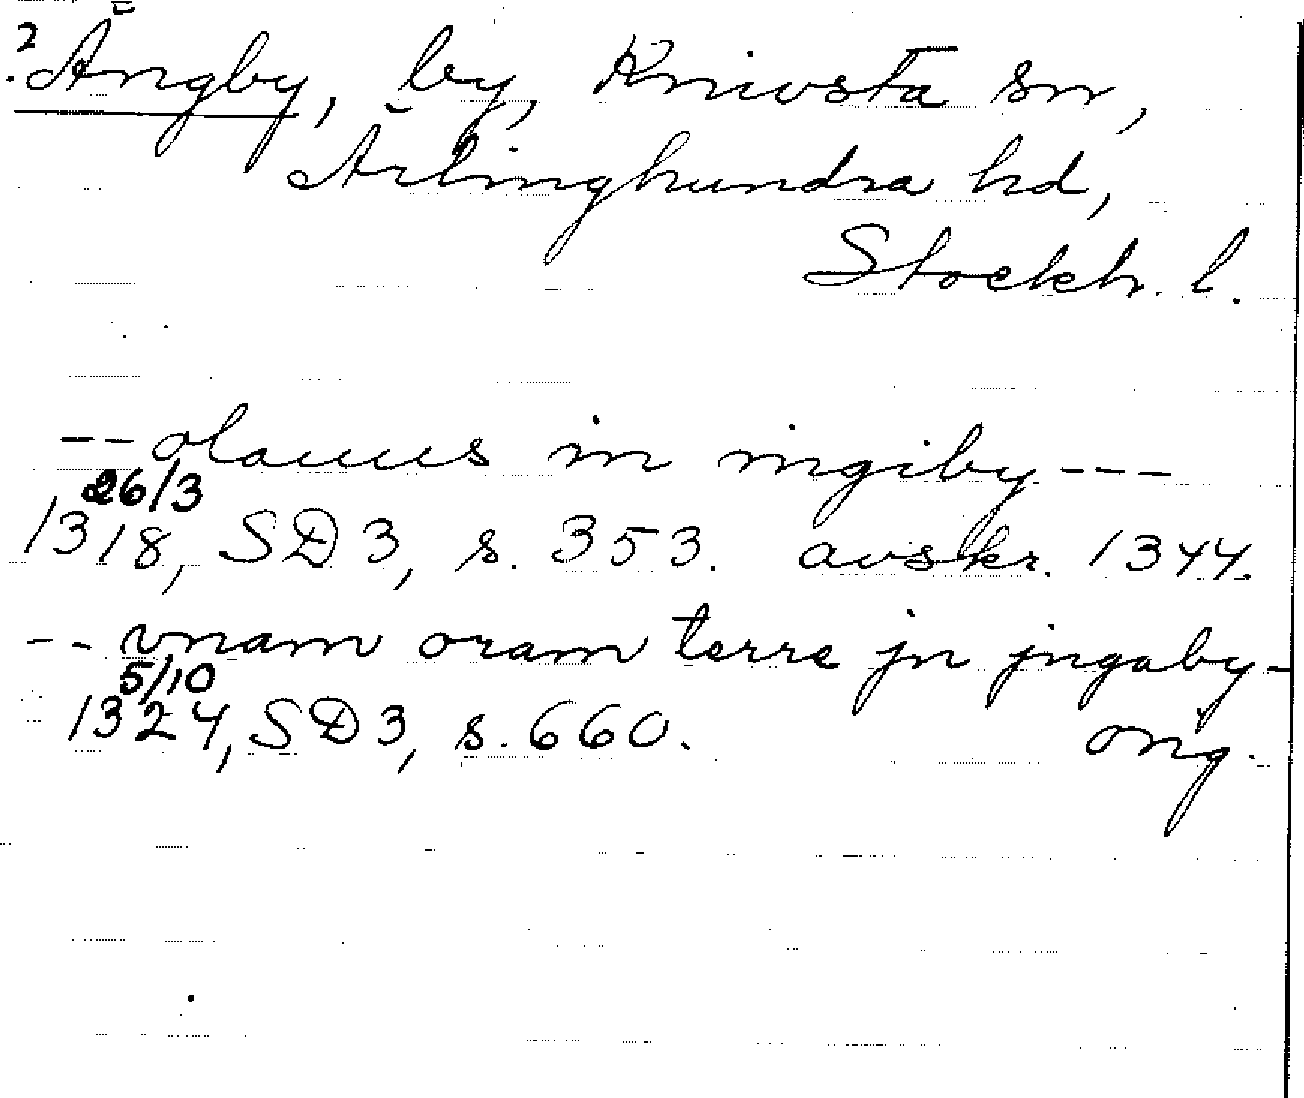 2
Ängby, by, Knivsta sn,
Ärlinghundra hd,
Stockh. l.
-- olauus in ingiby ---
26/3
1318, SD 3, s. 353. avskr. 1344.
-- vnam oram terre jn jngaby -
5/10
1324, SD 3, s. 660. orig.